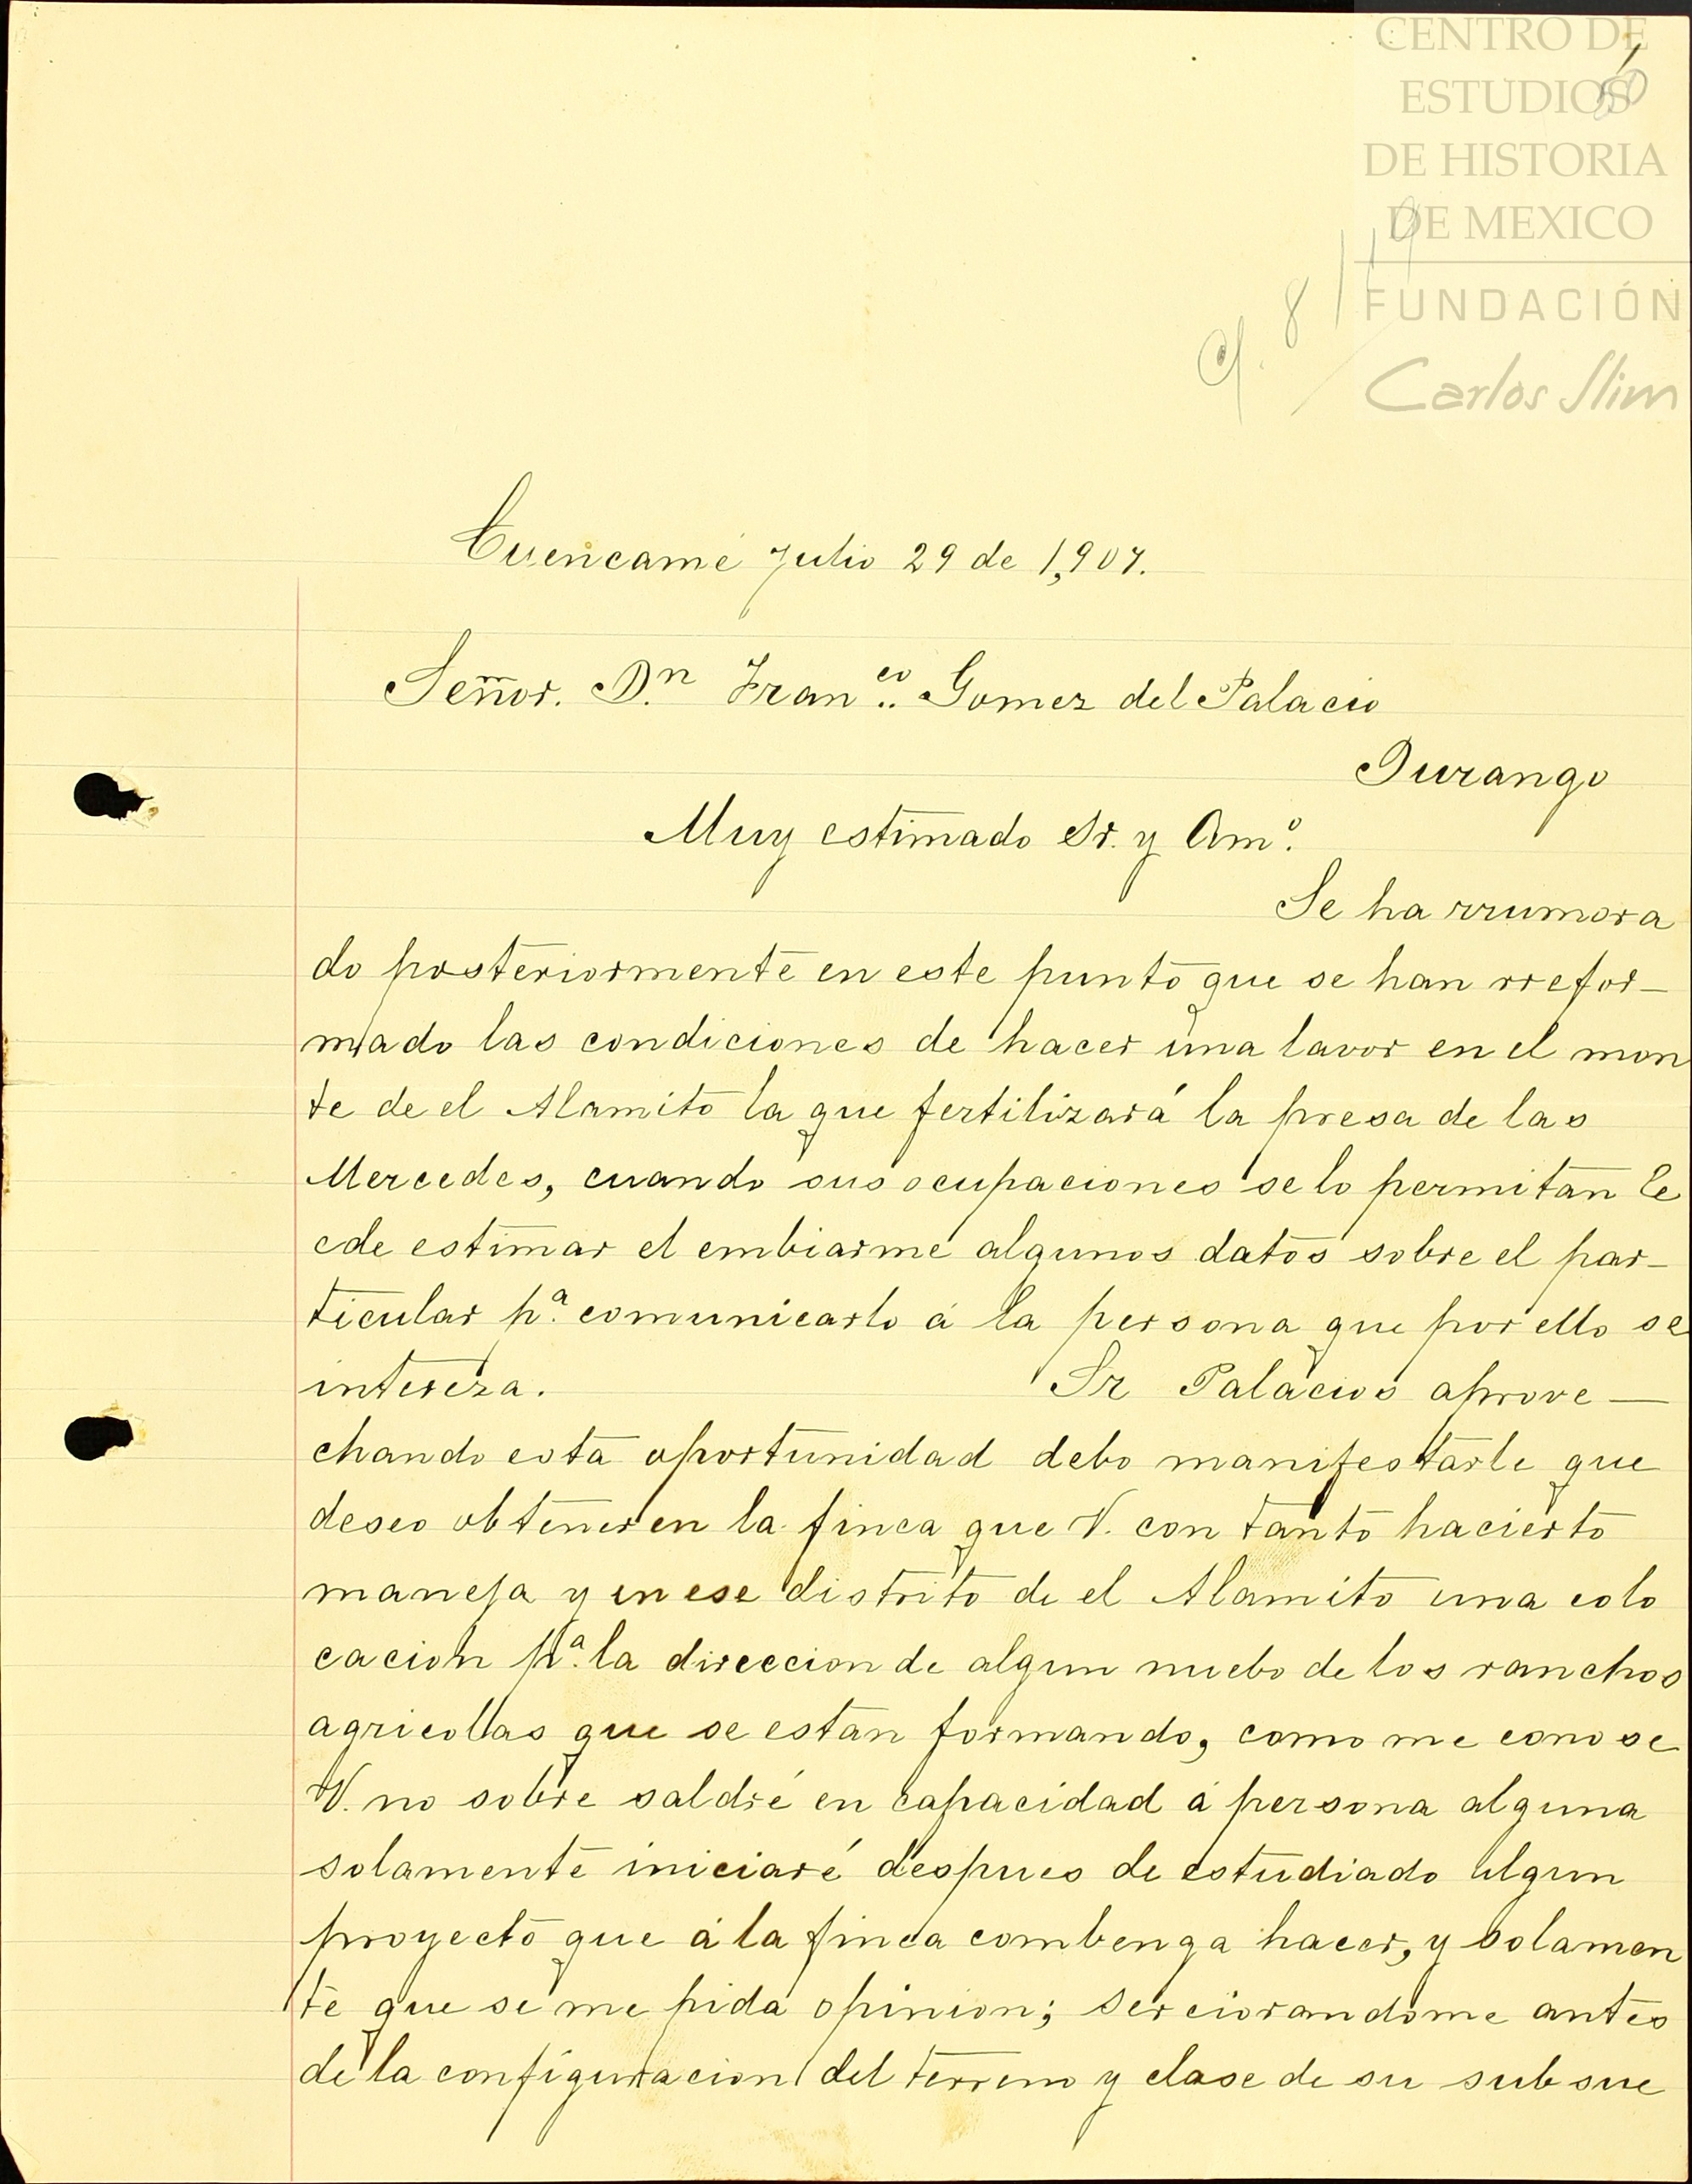 CENTRO DE
ESTUDIOS
DE HISTORIA
DE MEXICO
FUNDACIÓN
Carlos Slim
Cuencamé Julio 29 de 1,907.
Señor. Dn. Franco. Gomez del Palacio
Durango
Muy estimado Sr. y Amo.
Se ha rrumora
do posteriormente en este punto que se han rrefor-
mado las condiciones de hacer una lavor en el mon
te de el Alamito la que fertilizará la presa de las
Mercedes, cuando sus ocupaciones se lo permitan le
e de estimar el embiarme algunos datos sobre el par-
ticular pa. comunicarlo á la persona que por ello se
intereza. Sr Palacios aprove-
chando esta oportunidad debo manifestarle que
deseo obtener en la finca que V. con tanto hacierto
maneja y en ese distrito de el Alamito una colo
cacion pa. la direccion de algun nuebo de los ranchos
agricollas que se estan formando, como me conose
V. no sobre saldré en capacidad á persona alguna
solamente iniciaré despues de estudiado algun
proyecto que á la finca combenga hacer, y solamen
te que se me pida opinion; serciorandome antes
de la configuracion del terreno y clase de su subsue